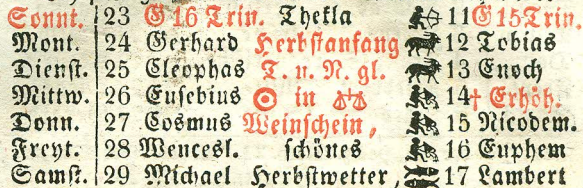 Sonnt. 23 G 16 Trin. Thekla 11 G 15 Trin.
Mont. 24 Gerhard Herbstanfang 12 Tobias
Dienst. 25 Cleophas T. u. N. gl. 13 Enoch
Mittw. 26 Eusebius ☉ in ♎ 14 † Erhöh.
Donn. 27 Cosmus Weinschein, 15 Nicodem.
Freyt. 28 Wencesl. schönes 16 Euphem
Samst. 29 Michael Herbstwetter 17 Lambert